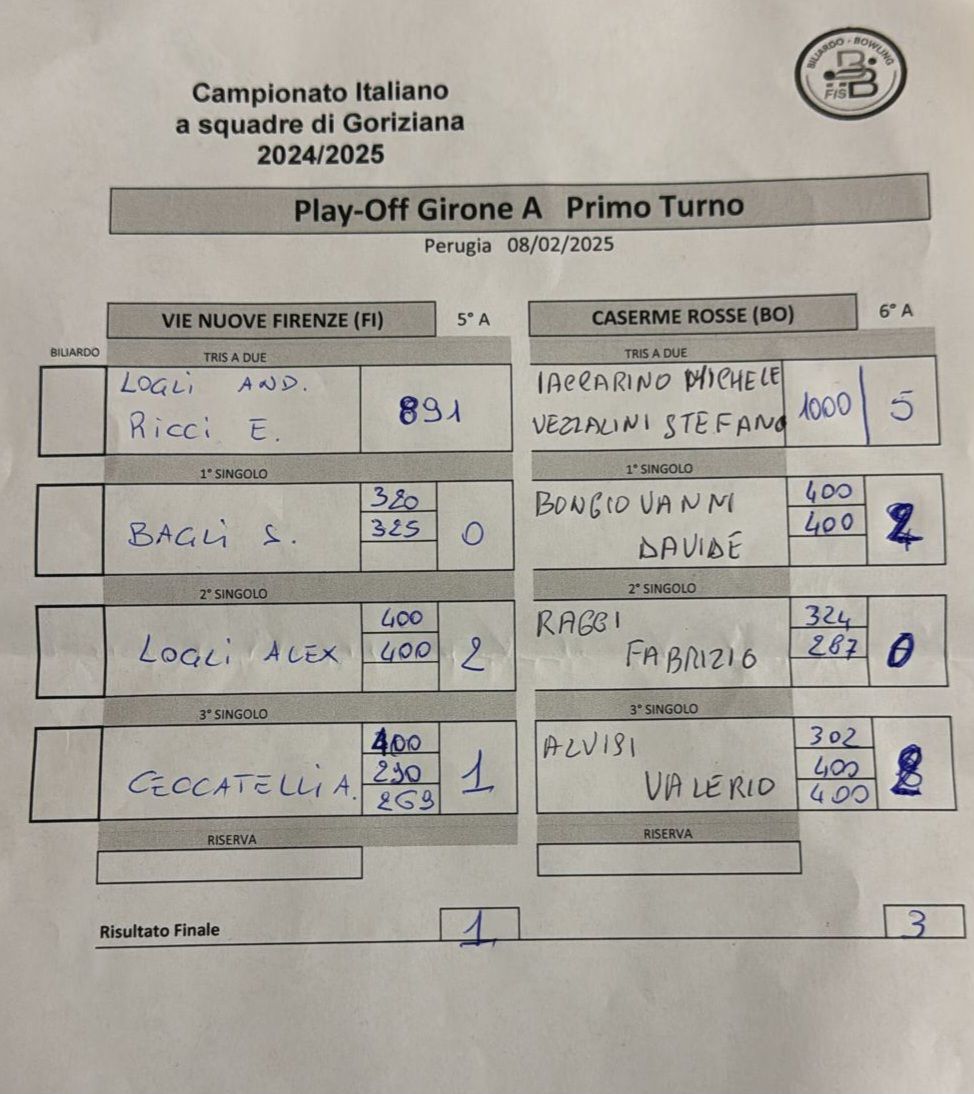 BILIARDO - BOWLING
FISBB
Campionato Italiano
a squadre di Goriziana
2024/2025
Play-Off Girone A Primo Turno
Perugia 08/02/2025
VIE NUOVE FIRENZE (FI) 5° A
CASERME ROSSE (BO) 6° A
BILIARDO
TRIS A DUE
LOGLI AND.
RICCI E.
891
TRIS A DUE
IACCARINO MICHELE
VEZZALINI STEFANO
1000 5
1° SINGOLO
BAGLI S.
320
325
0
1° SINGOLO
BONGIOVANNI
DAVIDE
400
400
2
2° SINGOLO
LOGLI ALEX
400
400
2
2° SINGOLO
RAGGI
FABRIZIO
324
287
0
3° SINGOLO
CECCATELLI A.
400
290
269
1
3° SINGOLO
ALVISI
VALERIO
302
400
400
2
RISERVA
RISERVA
Risultato Finale 1 3